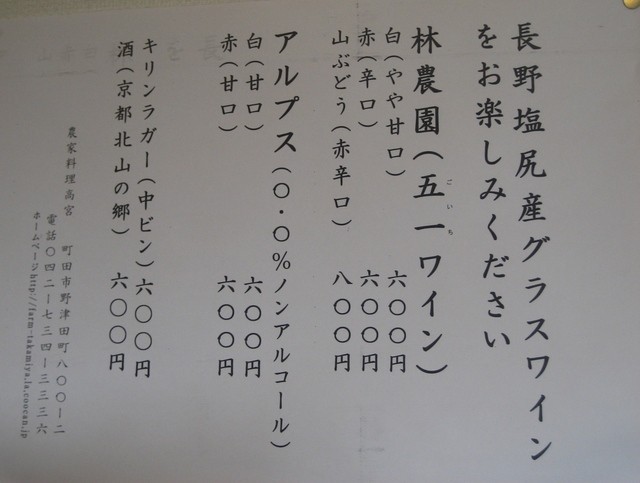 長野塩尻産グラスワイン
をお楽しみください
林農園(五一ワイン)
ごいち
白(やや甘口) 六〇〇円
赤(辛口) 六〇〇円
山ぶどう(赤辛口) 八〇〇円
アルプス(〇・〇%ノンアルコール)
白(甘口) 六〇〇円
赤(甘口) 六〇〇円
キリンラガー(中ビン) 六〇〇円
酒(京都北山の郷) 六〇〇円
農家料理高宮 町田市野津田町八〇〇ー二
電話〇四二ー七三四ー三三三六
ホームページhttp://farm-takamiya.la.coocan.jp